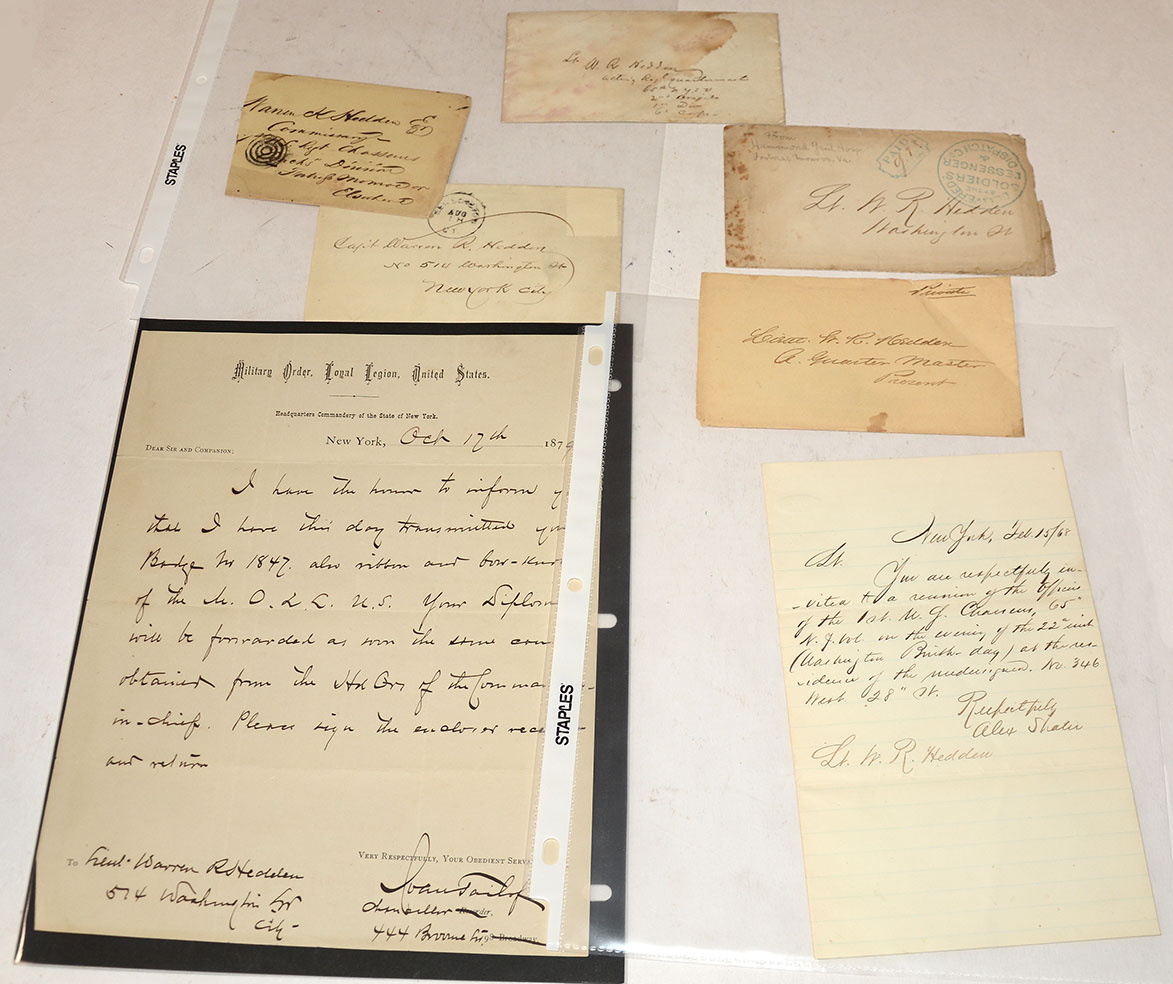 Lt. W. R. Hedden
Acting Regt Quartermaster
65th N.Y.S.V.
2nd Brigade
1st Div
6th Corps
Warren R Hedden
Commissary
Sgt Chasseurs
Division
Fortress Monroe or
Elsewhere
STAPLES
AUG
Capt Warren R. Hedden
No 514 Washington St
New York City
From
Hammond Genl Hosp
PAID
SOLDIERS
MESSENGER
&
DISPATCH CO
Lt. W R Hedden
Washington St
Private
Lieut. W. R. Hedden
A. Quarter Master
Present
Military Order, Loyal Legion, United States.
Headquarters Commandery of the State of New York.
New York, Oct 17th 1879
DEAR SIR AND COMPANION:
I have the honor to inform y
that I have this day transmitted you
Badge No 1847. also ribbon and bow-kno
of the M. O. L. L. U.S. Your Diplom
will be forwarded as soon the same can
obtained from the Hd Qrs of the Comman
in-chief. Please sign the enclosed rece
and return
VERY RESPECTFULLY, YOUR OBEDIENT SERVA
To Lieut. Warren R Hedden
514 Washington St
City
Chancellor Recorder,
444 Broome St, 98 Broadway.
STAPLES
New York, Feb. 15/68
Lt.
You are respectfully en-
-vited to a reunion of the officers
of the 1st. U. S. Chasseurs, 65"
N. Y. Vol. on the evening of the 22" inst
(Washington Birth-day) at the res-
-idence of the undersigned. No. 346
West 28" St.
Respectfully
Alex Shaler
Lt. W. R. Hedden